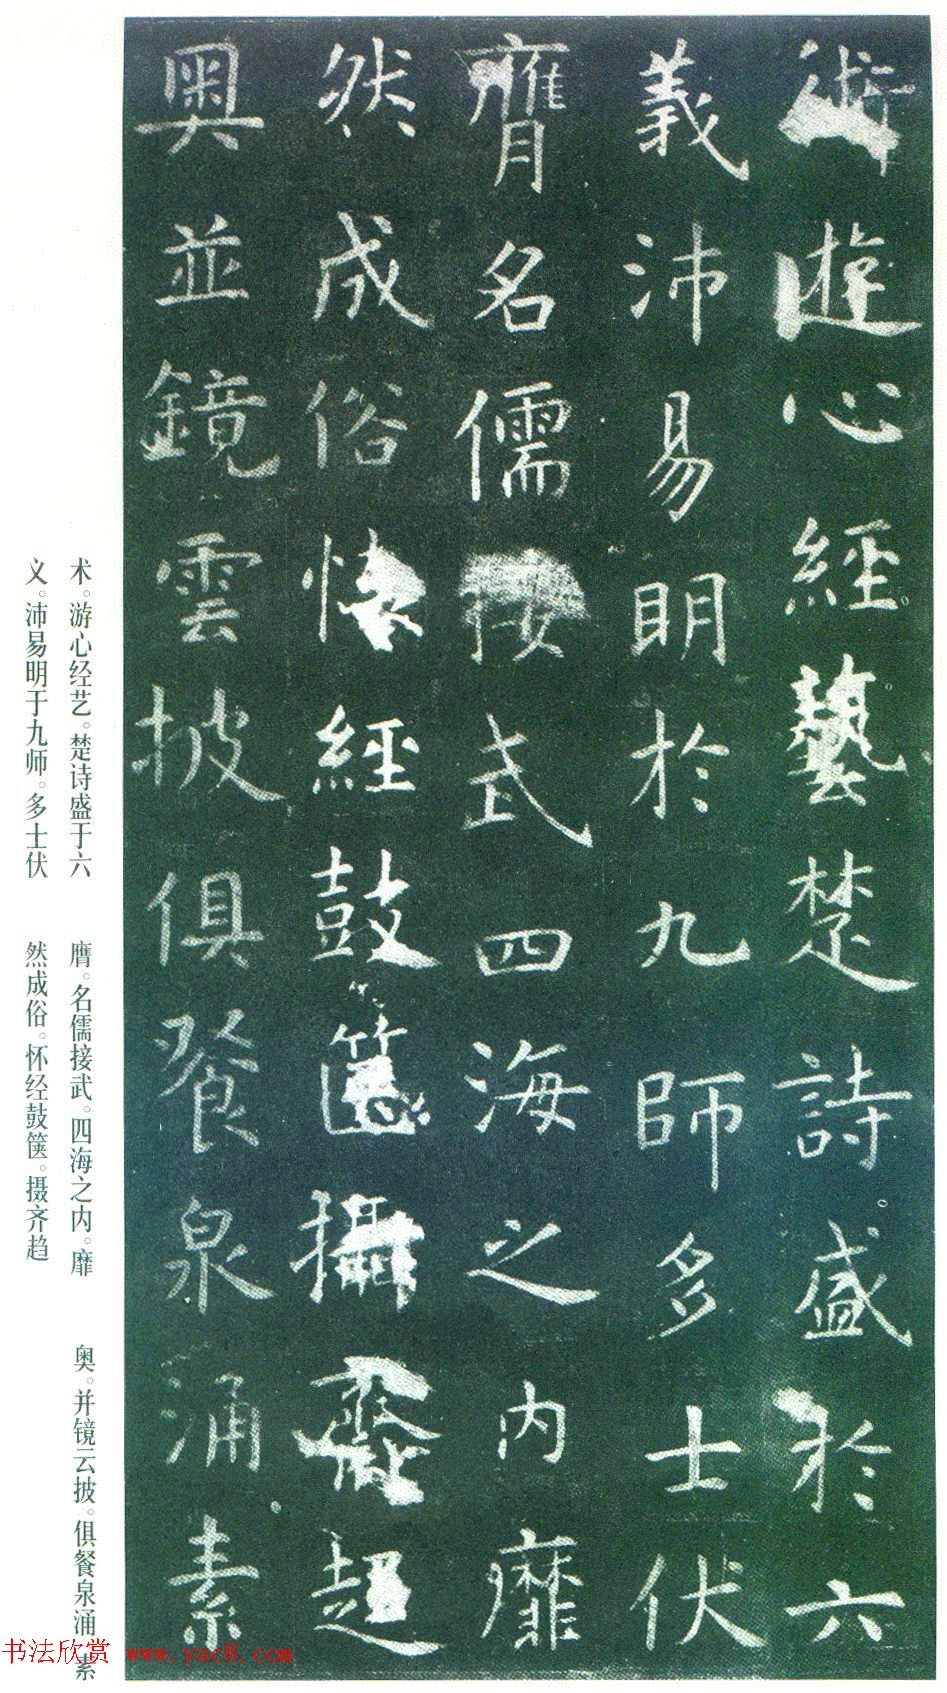 術遊心經藝楚詩盛於六
義沛易明於九師多士伏
膺名儒接武四海之內靡
然成俗懷經鼓篋攝齊趍
奧並鏡雲披俱餐泉涌素
术。游心经艺。楚诗盛于六
义。沛易明于九师。多士伏
膺。名儒接武。四海之内。靡
然成俗。怀经鼓箧。摄齐趋
奥。并镜云披。俱餐泉涌。素
书法欣赏 www.yac8.com